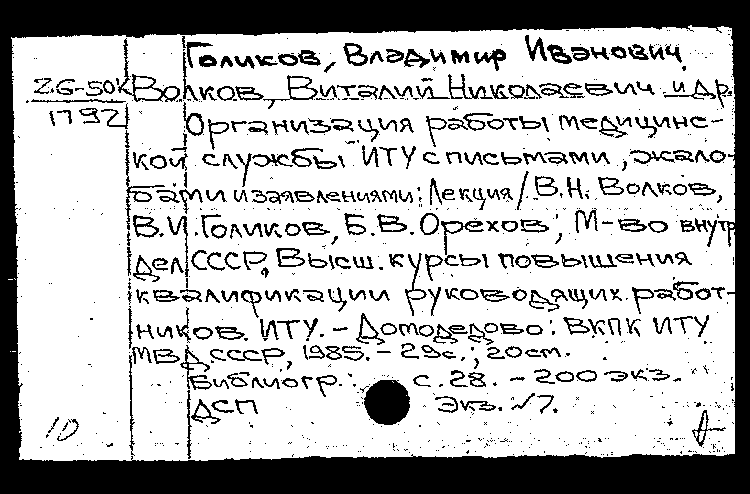 Голиков, Владимир Иванович,
Z6-50К Волков, Виталий Николаевич и др.
1792
Организация работы медицинс-
кой службы ИТУ с письмами, жало-
бами и заявлениями: Лекция / В.Н. Волков,
В.И. Голиков, Б.В. Орехов; М-во внутр
дел СССР, Высш. курсы повышения
квалификации руководящих работ-
ников. ИТУ. - Домодедово: ВКПК ИТУ
МВД СССР, 1985. - 29с.; 20см.
Библиогр.: с. 28. - 200 экз.
ДСП Экз. №7.
10